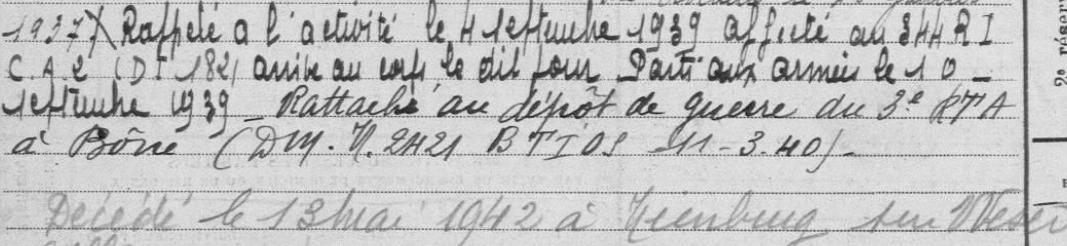 1937) Rappelé a l'activité le 4 septembre 1939 affecté au 344 R I
C.A.2 (DI 182) arrive au corps le dit jour Parti aux armées le 10
septembre 1939 _ Rattaché au dépôt de guerre du 3e RTA
à Bône (DM. N. 2421 BTIOS 11-3.40)_
Décédé le 13 mai 1942 à Nienburg sur Weser
2e réser